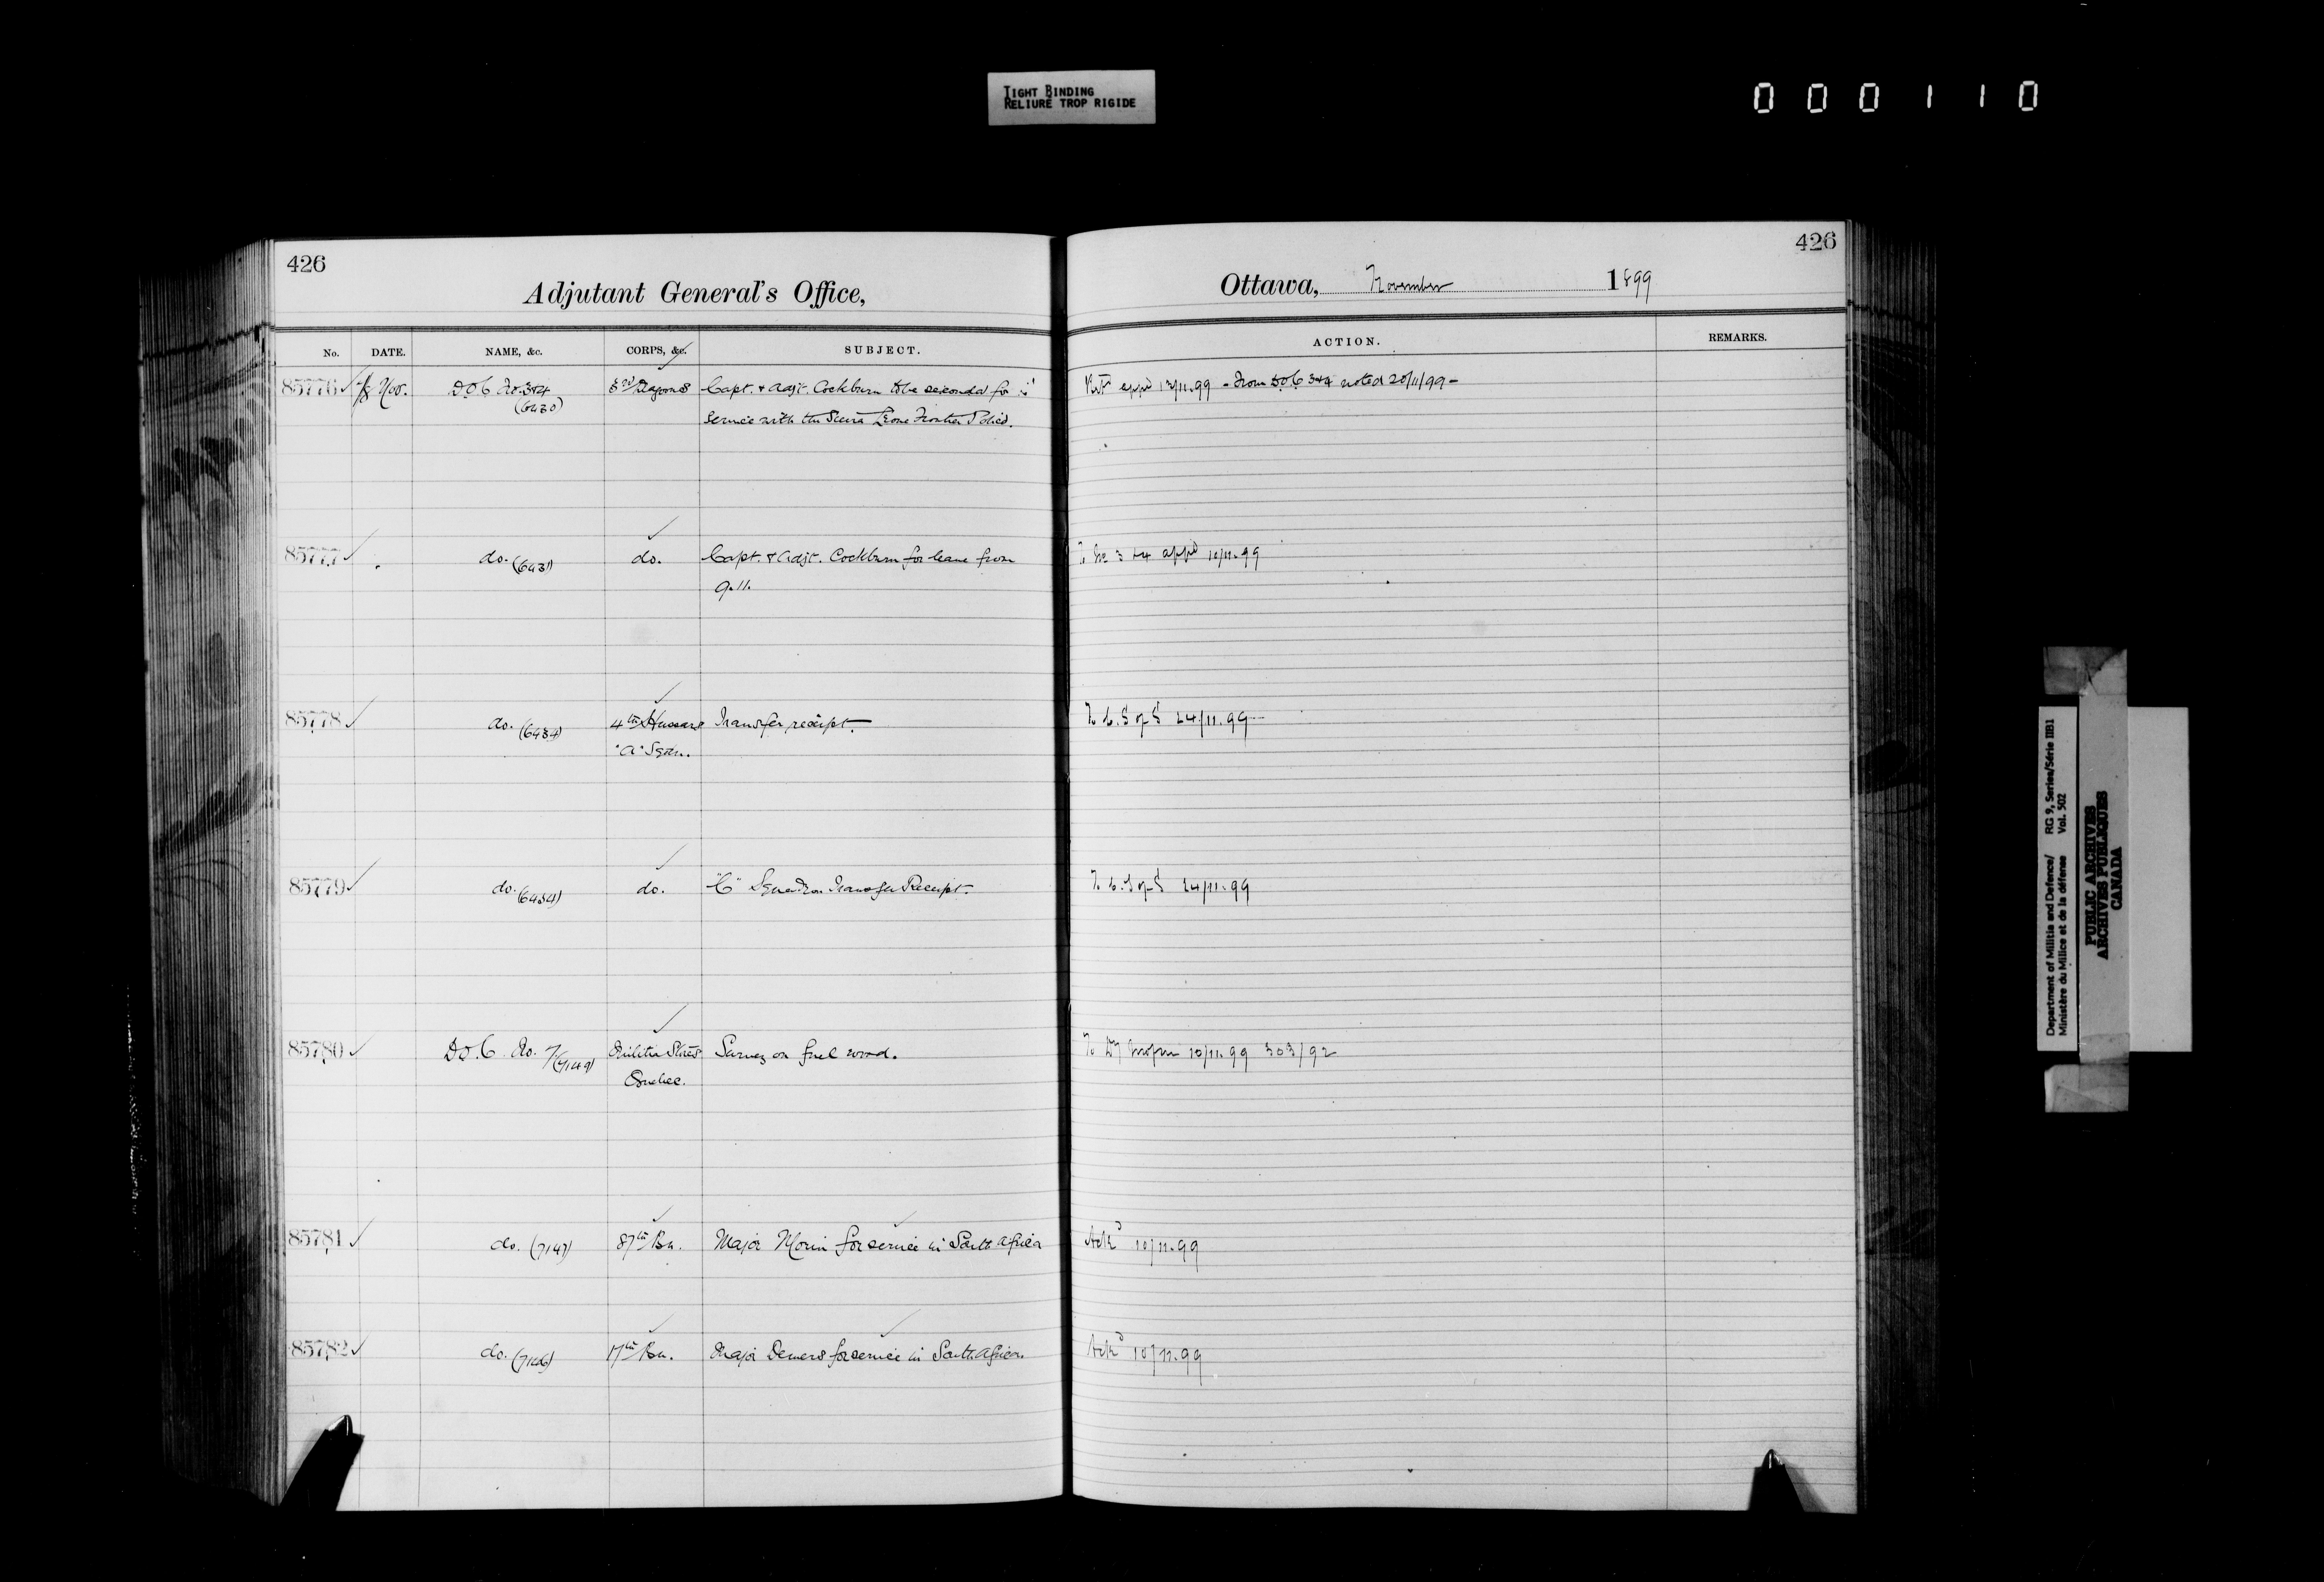 TIGHT BINDING
RELIURE TROP RIGIDE
000110
426
Adjutant General's Office,
No. DATE. NAME, &c. CORPS, &c. SUBJECT.
85776 8 Nov. D.O.C. No. 3+4 3rd Dragoons Capt. & Adjt. Cockburn to be seconded for
(6430)
service with the Sierra Leone Frontier Police.
85777 do. (6431) do. Capt. & Adjt. Cockburn for leave from
9.11.
85778 do. (6434) 4th Hussars Transfer receipt.
"A" Sqdn.
85779 do. (6434) do. "C" Squadron Transfer Receipt.
85780 D.O.C. No. 7 (7149) Militia Stores Survey on fuel wood.
Quebec.
85781 do. (7147) 87th Bn. Major Morin for service in South Africa
85782 do. (7146) 17th Bn. Major Demers for service in South Africa.
426
Ottawa, November 1899
ACTION. REMARKS.
appd 13/11.99 - From DOC 3+4 noted 20/11/99 -
To 3+4 appd 10/11.99
To C. S of S 24/11.99
To C. S of S 24/11.99
To 10/11.99 303/92
Ackd 10/11.99
Ackd 10/11.99
Department of Militia and Defence/ RG 9, Series/Série IIB1
Ministère du Milice et de la défense Vol. 502
PUBLIC ARCHIVES
ARCHIVES PUBLIQUES
CANADA